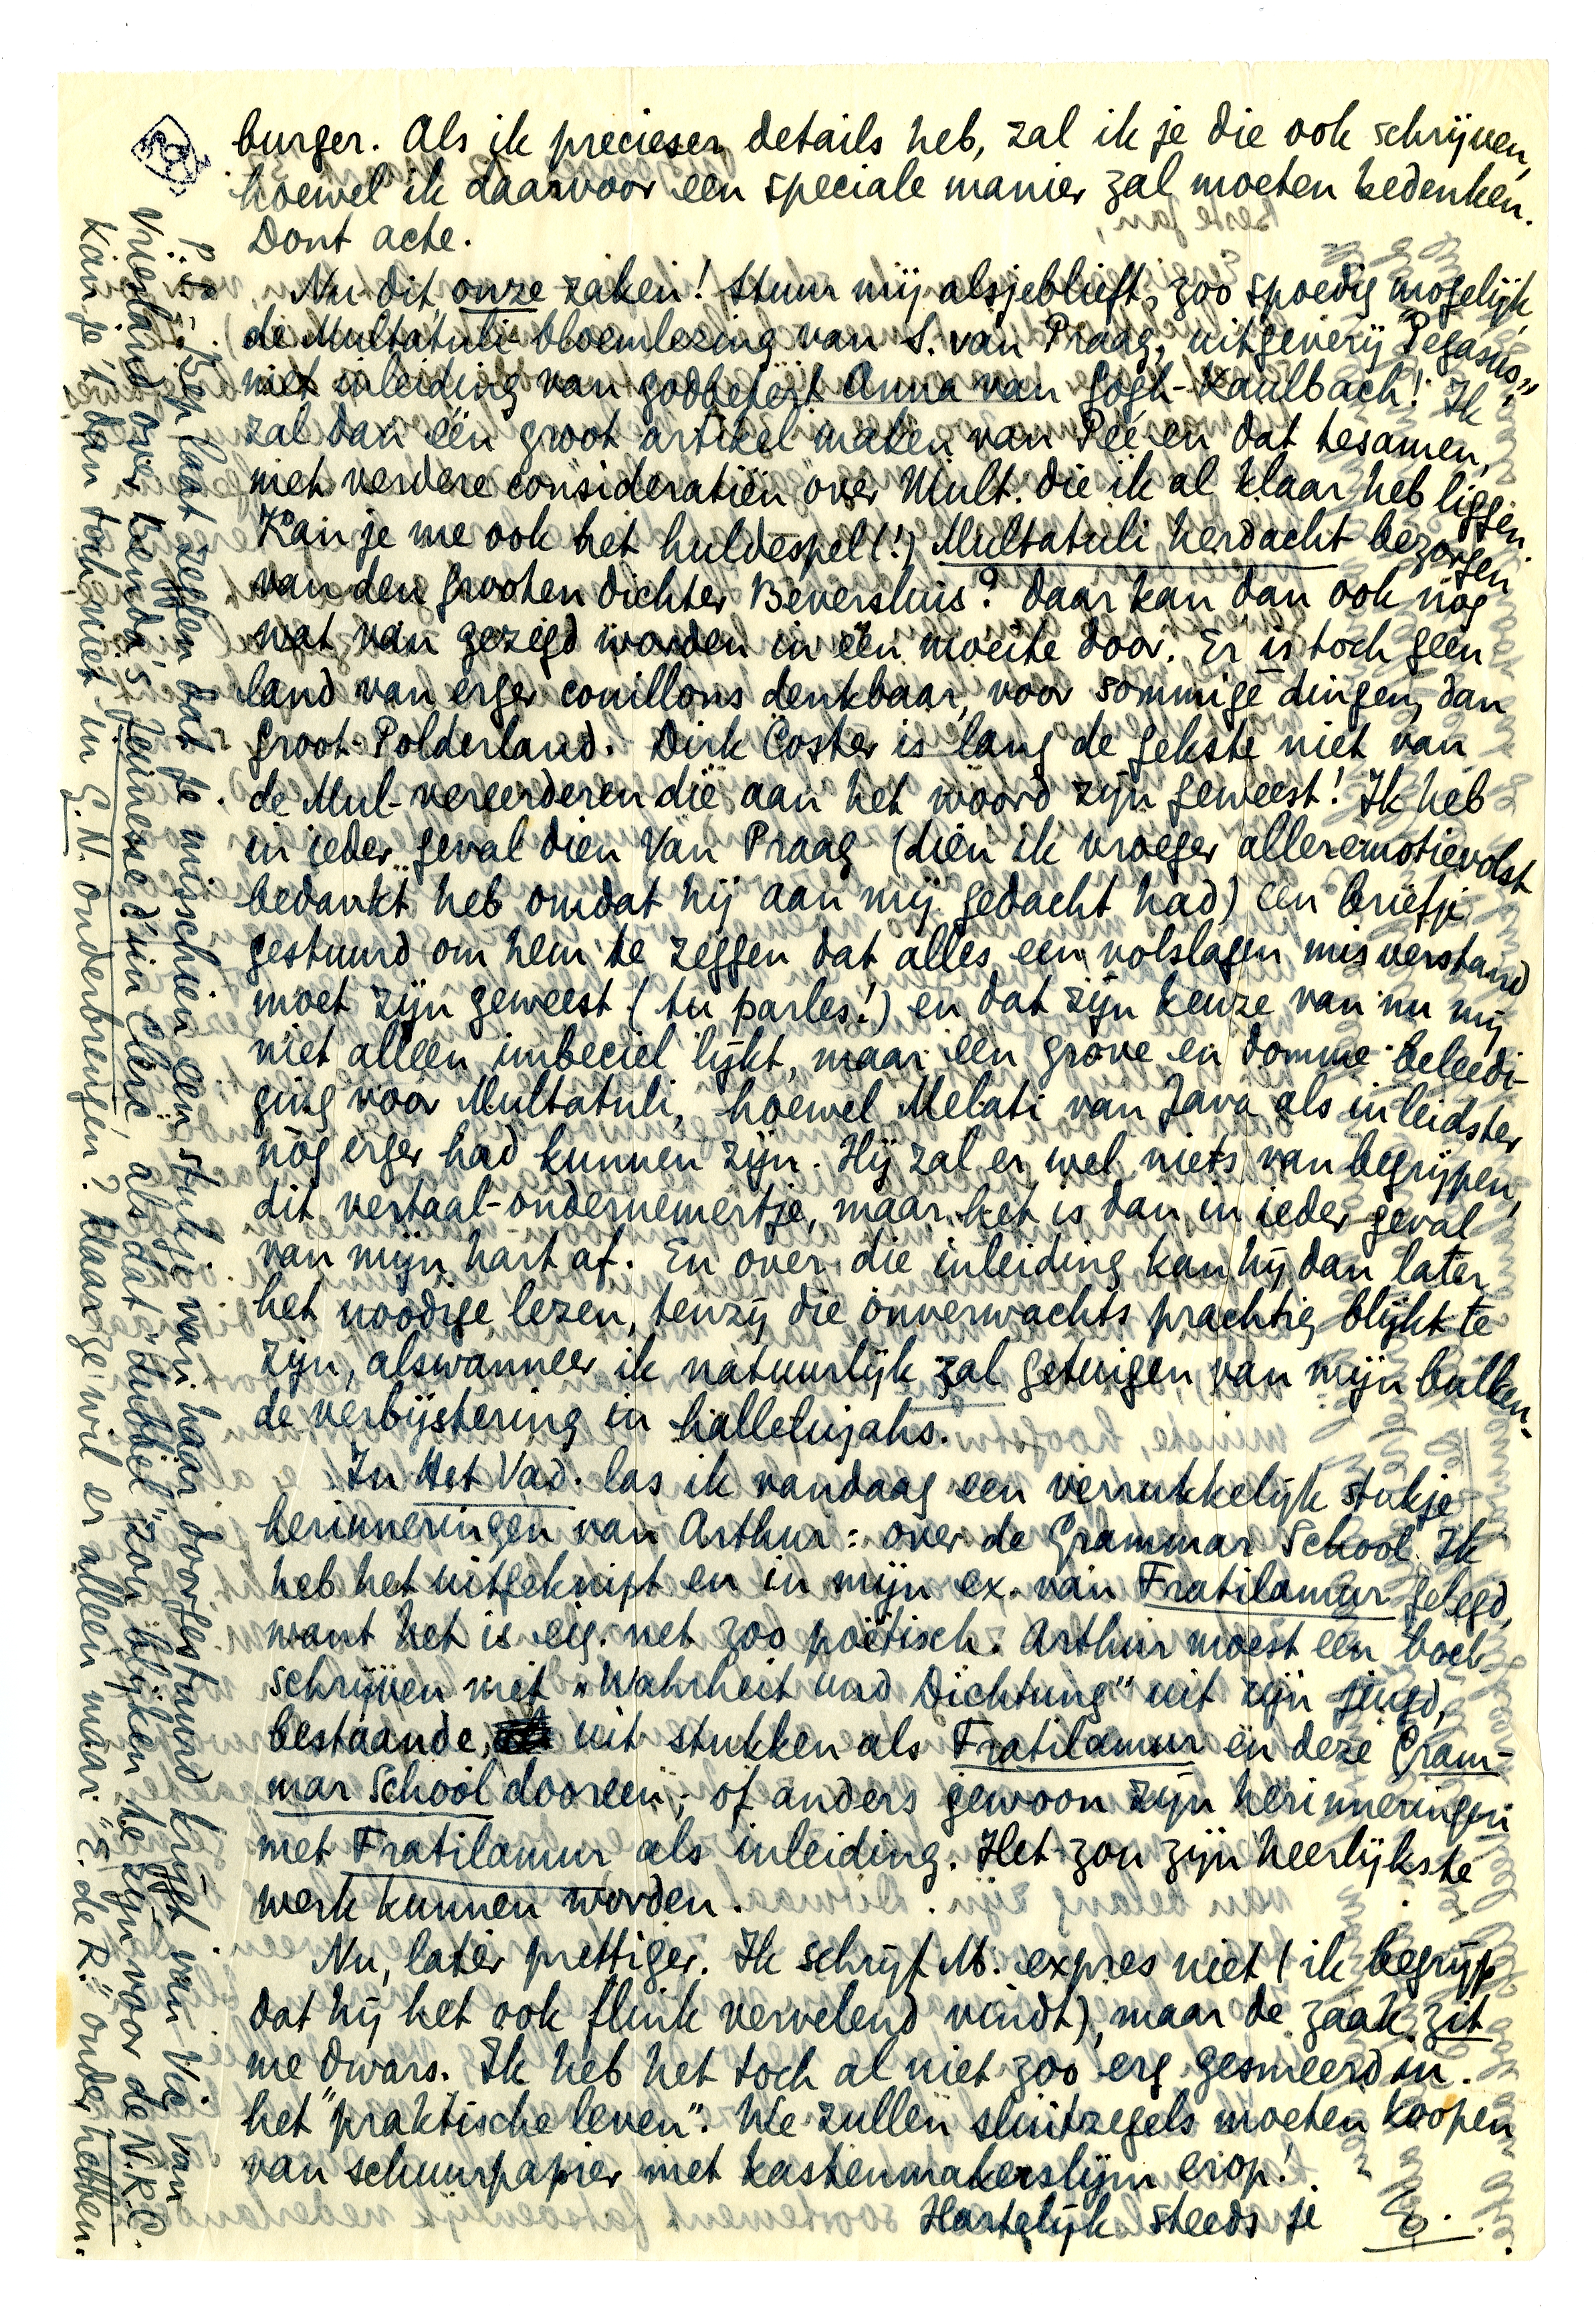 burger. Als ik precieser details heb, zal ik je die ook schrijven,
hoewel ik daarvoor een speciale manier zal moeten bedenken.
Dont acte.
Nu dit, onze zaken! Stuur mij alsjeblieft, zoo spoedig mogelijk,
de Multatuli-bloemlezing van S. van Praag, uitgeverij "Pegasus",
met inleiding van godbetert Anna van Gogh-Kaulbach! Ik
zal dan één groot artikel maken van Pée en dat tesamen,
met verdere consideratiën over Mult. die ik al klaar heb liggen.
Kan je me ook het huldespel (!) Multatuli herdacht bezorgen
van den grooten dichter Beversluis? Daar kan dan ook nog
wat van gezegd worden in één moeite door. Er is toch geen
land van erger couillons denkbaar, voor sommige dingen, dan
Groot-Polderland. Dirk Coster is lang de gekste niet van
de Mul-vereerderen die aan het woord zijn geweest! Ik heb
in ieder geval dien Van Praag (dien ik vroeger alleremotievolst
bedankt heb omdat hij aan mij gedacht had) een briefje
gestuurd om hem te zeggen dat alles een volslagen misverstand
moet zijn geweest (tu parles!) en dat zijn keuze van nu mij
niet alleen imbeciel lijkt, maar een grove en domme beleedi-
ging voor Multatuli, hoewel Melati van Java als inleidster
nòg erger had kunnen zijn. Hij zal er wel niets van begrijpen,
dit vertaal-ondernemertje, maar het is dan in ieder geval
van mijn hart af. En over die inleiding kan hij dan later
het noodige lezen, tenzij die onverwachts prachtig blijkt te
zijn, alswanneer ik natuurlijk zal getuigen van mijn balken-
de verbijstering in hallelujahs.
In Het Vad. las ik vandaag een verrukkelijk stukje
herinneringen van Arthur: over de Grammar School. Ik
heb het uitgeknipt en in mijn ex. van Fratilamur gelegd,
want het is eig. net zoo poëtisch. Arthur moest een boek
schrijven met "Wahrheit und Dichtung" uit zijn jeugd,
bestaande uit stukken als Fratilamur en deze Gram-
mar School dooreen; of anders gewoon zijn herinneringen
met Fratilamur als inleiding. Het zou zijn heerlijkste
werk kunnen worden.
Nu, later prettiger. Ik schrijf M. expres niet (ik begrijp
dat hij het ook flink vervelend vindt), maar de zaak zit
me dwars. Ik heb het toch al niet zoo erg gesmeerd in
het "praktische leven". We zullen sluitzegels moeten koopen
van schuurpapier met kastenmakerslijm erop!
Hartelijk steeds je E.
P.S. Bep laat zeggen dat je misschien een stukje van haar doorgestuurd krijgt van Vic van
Vriesland over Benda's Jeunesse d'un Clerc als dat "dubbel" zou blijken te zijn voor de N.R.C.
Kan je 't dan toch niet in G.N. onderbrengen? Maar ze wil er alleen maar "E. de R." onder hebben.